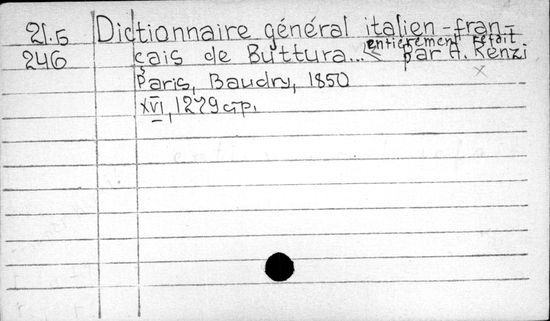 21.5 Dictionnaire général italien-fran-
246 çais de Buttura... < entièrement refait par A. Renzi
Paris, Baudry, 1850
XVI, 1279 стр.